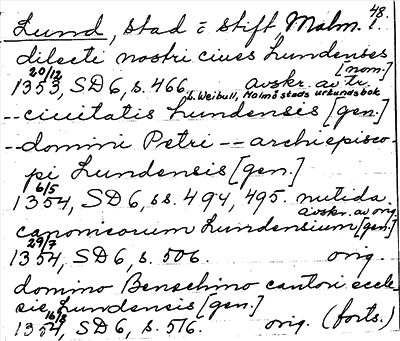 48.
Lund, stad o stift, Malm. l.
dilecti nostri cives Lundenses
[nom.]
20/12
1353, SD 6, s. 466. Avskr. av tr.
L. Weibull, Malmö stads urkundsbok
--ciuitatis Lundensis [gen.]
--domini Petri -- archiepisco-
pi Lundensis [gen.]
6/5
1354, SD 6, ss. 494, 495. nutida
avskr. av orig.
canonicorum Lundensium [gen.]
29/7
1354, SD 6, s. 506. orig.
domino Benechino cantori eccle-
sie Lundensis [gen.]
16/8
1354, SD 6, s. 516. orig. (forts.)